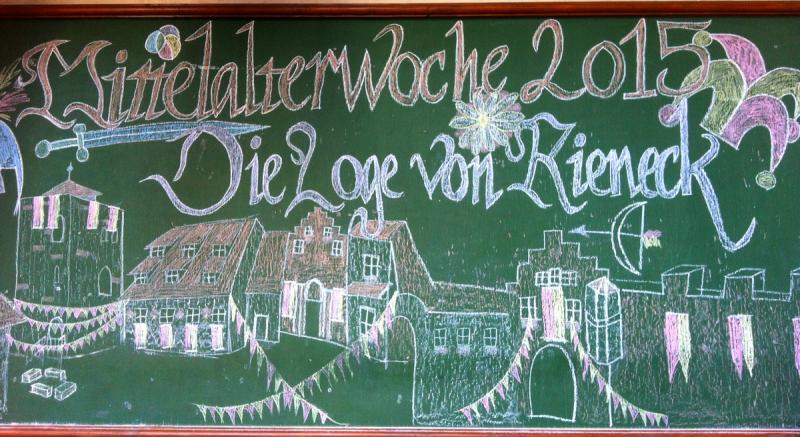 Mittelalterwoche 2015
Die Loge von Rieneck